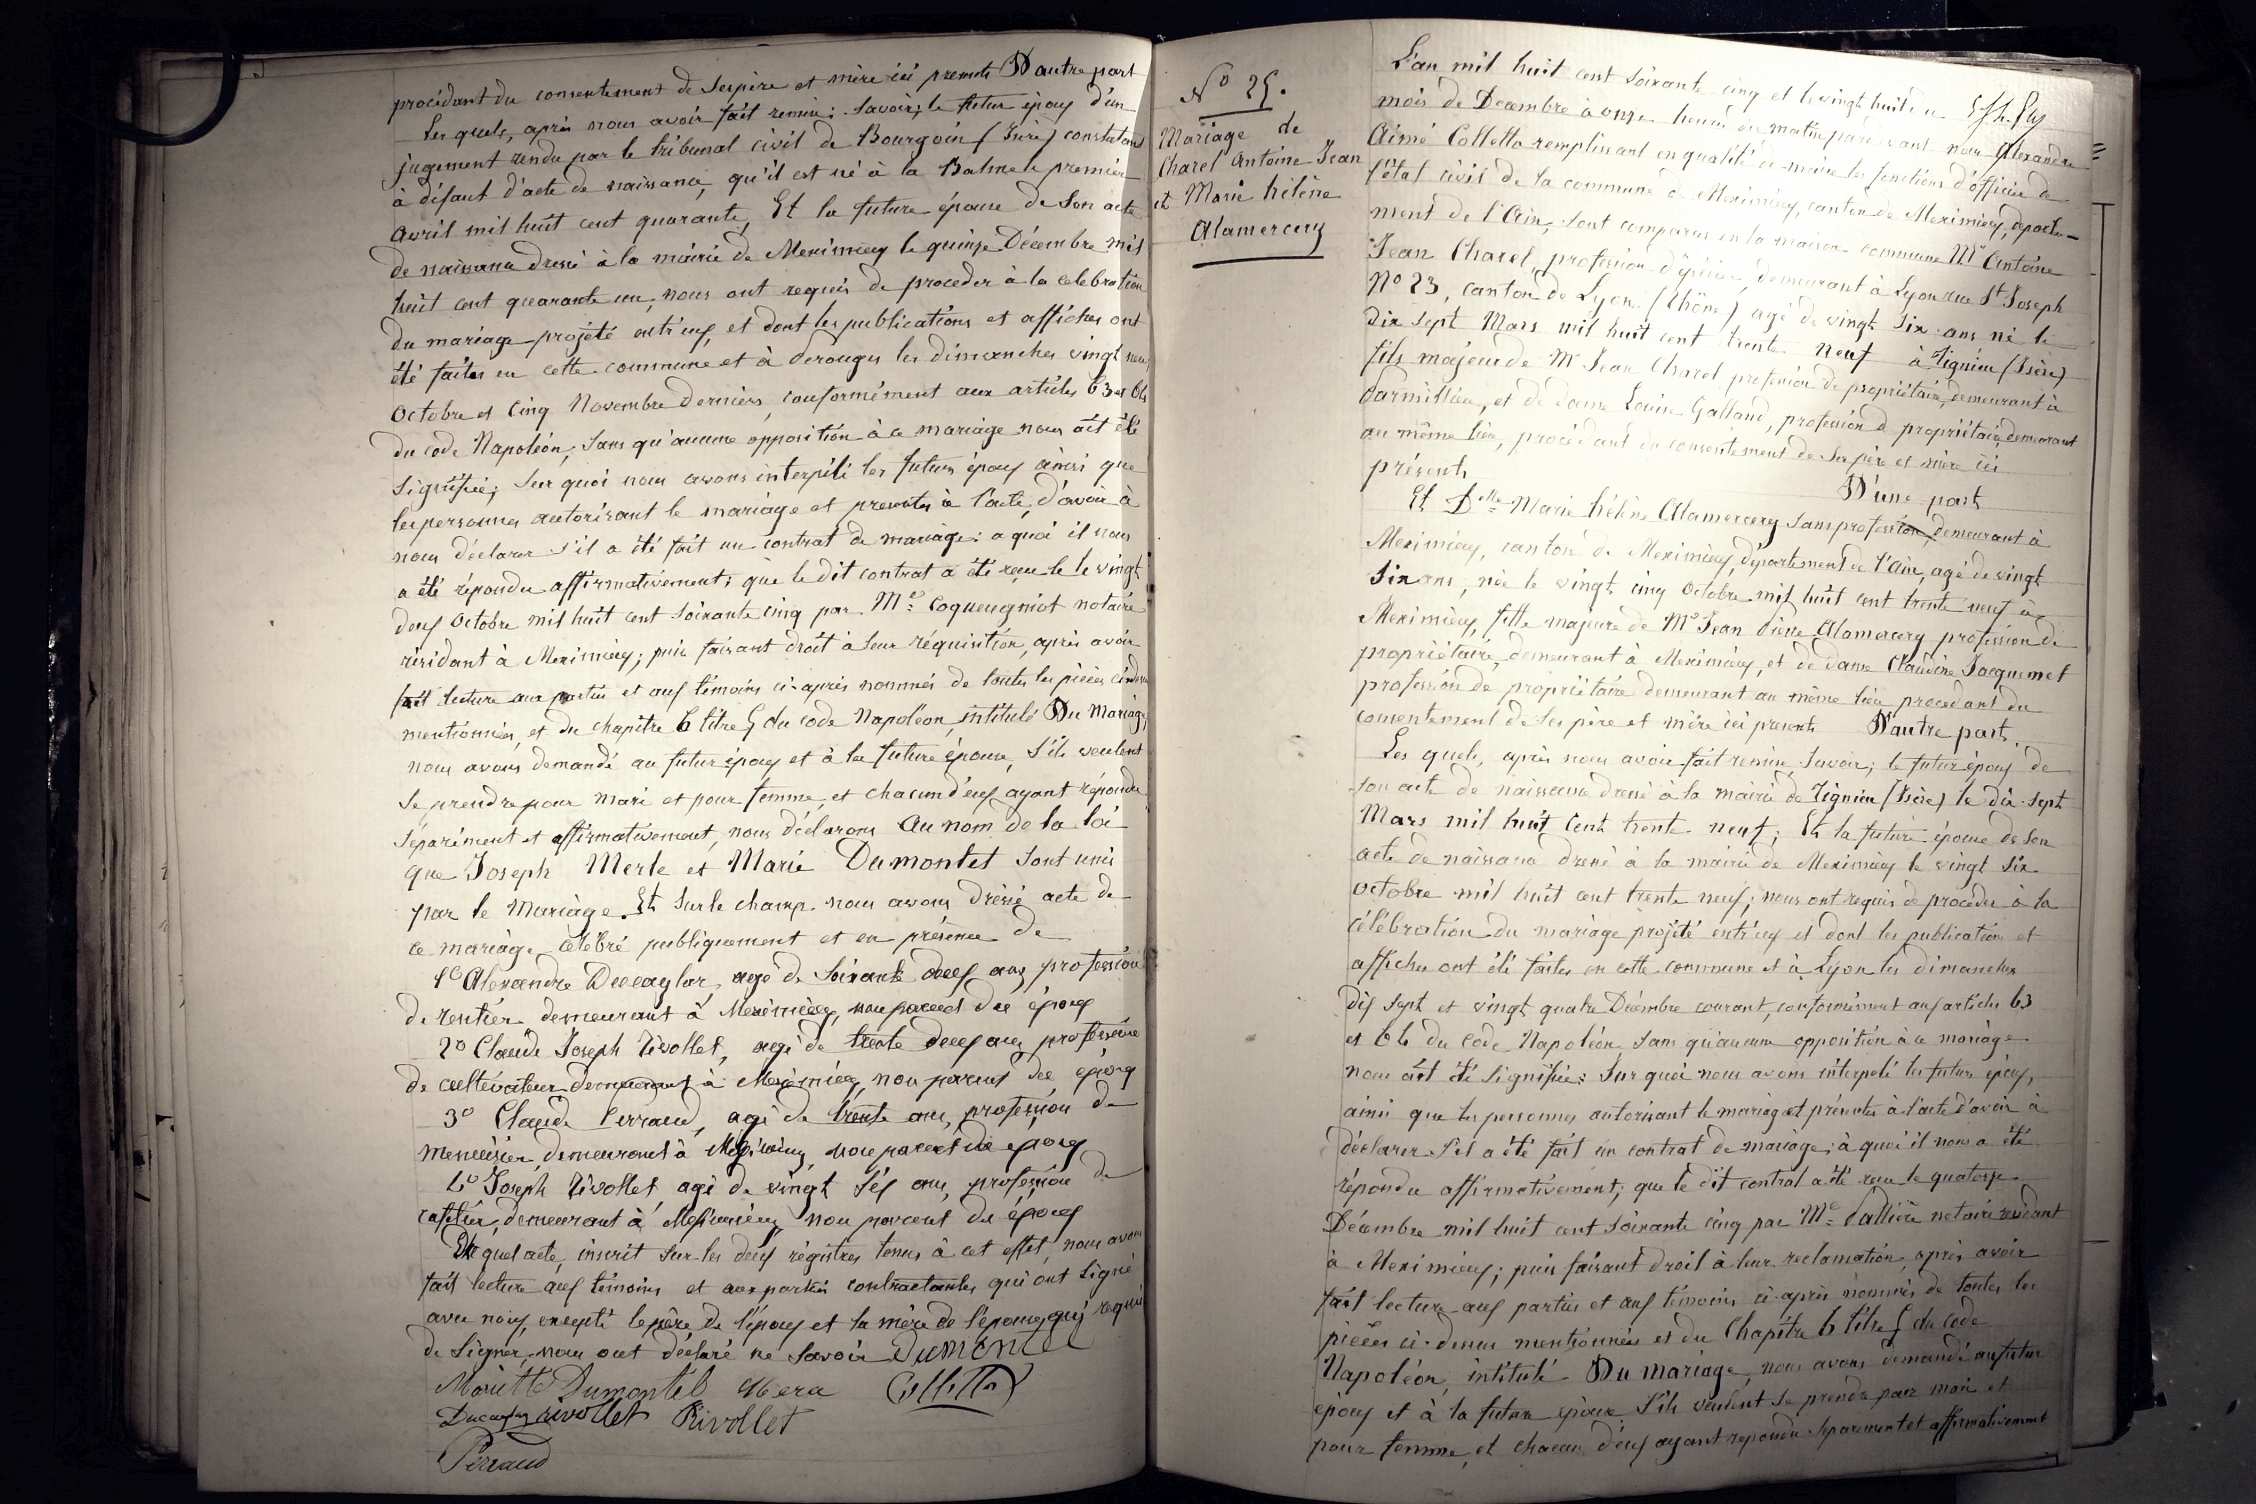 procédant du consentement de ses père et mère ici présents D'autre part
Les quels, après nous avoir fait remise: Savoir; le futur époux d'un
jugement rendu par le tribunal civil de Bourgoin (Isère) constatant
à défaut d'acte de naissance, qu'il est né à la Balme le premier
avril mil huit cent quarante, Et la future épouse de son acte
de naissance dressé à la mairie de Meximieux le quinze Décembre mil
huit cent quarante un, nous ont requis de procéder à la celebration
du mariage projeté entr'eux, et dont les publications et affiches ont
été faites en cette commune et à Perouges les dimanches vingt neuf
Octobre et Cinq Novembre derniers, conformément aux articles 63 et 64
du code Napoléon, sans qu'aucune opposition à ce mariage nous ait été
signifiée; Sur quoi nous avons interpelé les futurs époux ainsi que
les personnes autorisant le mariage et presentes à l'acte, d'avoir à
nous déclarer s'il a été fait un contrat de mariage: a quoi il nous
a été répondu affirmativement; que le dit contrat a été reçu le le vingt
deux Octobre mil huit cent soixante cinq par Me Coqueugniot notaire
résidant à Meximieux; puis faisant droit à leur réquisition, après avoir
fait lecture aux parties et aux témoins ci-après nommés de toutes les pièces ci-dessus
mentionnées, et du chapitre 6 titre 5 du code Napoléon, intitulé Du Mariage,
nous avons demandé au futur époux et à la future épouse, s'ils veulent
se prendre pour mari et pour femme, et chacun d'eux ayant répondu
séparément et affirmativement, nous déclarons Au nom de la loi
que Joseph Merle et Marie Dumontet sont unis
par le Mariage. Et sur le champ nous avons dressé acte de
ce mariage célébré publiquement et en présence de
1o Alexandre Ducaylar, agé de Soixante deux ans, profession
de rentier demeurant à Meximieux, non parent des époux
2o Claude Joseph Rivollet, agé de trente deux ans, profession
de cultivateur demeurant à Meximieux, non parent des époux
3o Claude Perraud, agé de trente ans, profession de
menuisier, demeurant à Meximieux, non parent des époux
4o Joseph Rivollet, agé de vingt six ans, profession de
cafetier, demeurant à Meximieux, non parent des époux
Du quel acte, inscrit sur les deux régistres tenus à cet effet, nous avons
fait lecture aux témoins et aux parties contractantes qui ont signé
avec nous, excepté le père de l'époux et la mère de l'épouse qui requis
de signer, nous ont déclaré ne savoir Dumontet
Mariette Dumontél Colletta
Ducaylar Rivollet Rivollet
Perraud
No 25.
Mariage de
Charel Antoine Jean
et Marie hélène
Alamercery
L'an mil huit cent soixante cinq et le vingt huit du
mois de Décembre à onze heures du matin, par devant nous Alexandre
Aimé Colletta remplissant en qualité de maire les fonctions d'officier de
l'état civil de la commune de Meximieux, canton de Meximieux, départe-
ment de l'Ain, sont comparus en la maison commune Mr Antoine
Jean Charel, profession d'épicier, demeurant à Lyon rue St Joseph
No 23, canton de Lyon (Rhône) agé de vingt six ans né le
dix sept Mars mil huit cent trente neuf à Tignieu (Isère)
fils majeur de Mr Jean Charel profession de propriétaire, demeurant à
Jarmillieu, et de dame Louise Galland, profession de propriétaire, demeurant
au même lieu, procédant du consentement de ses père et mère ici
présents D'une part
Et Delle Marie hélène Alamercery sans profession, demeurant à
Meximieux, canton de Meximieux, département de l'Ain, agé de vingt
six ans, née le vingt cinq Octobre mil huit cent trente neuf à
Meximieux, fille majeure de Mr Jean Pierre Alamercery profession de
propriétaire, demeurant à Meximieux, et de dame Claudine Jacquemet
profession de propriétaire demeurant au même lieu, procédant du
consentement de ses père et mère ici présents D'autre part.
Les quels, après nous avoir fait remise, savoir; le futur époux de
son acte de naissance dressé à la mairie de Tignieu (Isère) le dix sept
Mars mil huit cent trente neuf; Et la future épouse de son
acte de naissance dressé à la mairie de Meximieux le vingt six
octobre mil huit cent trente neuf, nous ont requis de procéder à la
célébration du mariage projeté entr'eux et dont les publications et
affiches ont été faites en cette commune et à Lyon les dimanches
dix sept et vingt quatre Décembre courant, conformément aux articles 63
et 64 du code Napoléon sans qu'aucune opposition à ce mariage
nous ait été signifiée: Sur quoi nous avons interpelé les futurs époux,
ainsi que les personnes autorisant le mariage et présentes à l'acte d'avoir à
déclarer s'il a été fait un contrat de mariage; à quoi il nous a été
répondu affirmativement; que le dit contrat a été reçu le quatorze
Décembre mil huit cent soixante cinq par Me Vallière notaire résidant
à Meximieux; puis faisant droit à leur reclamation, après avoir
fait lecture aux parties et aux témoins ci-après nommés de toutes les
pièces ci-dessus mentionnées et du Chapitre 6 titre 5 du code
Napoléon, intitulé Du mariage, nous avons demandé au futur
époux et à la future épouse s'ils veulent se prendre pour mari et
pour femme, et chacun d'eux ayant répondu séparément et affirmativement